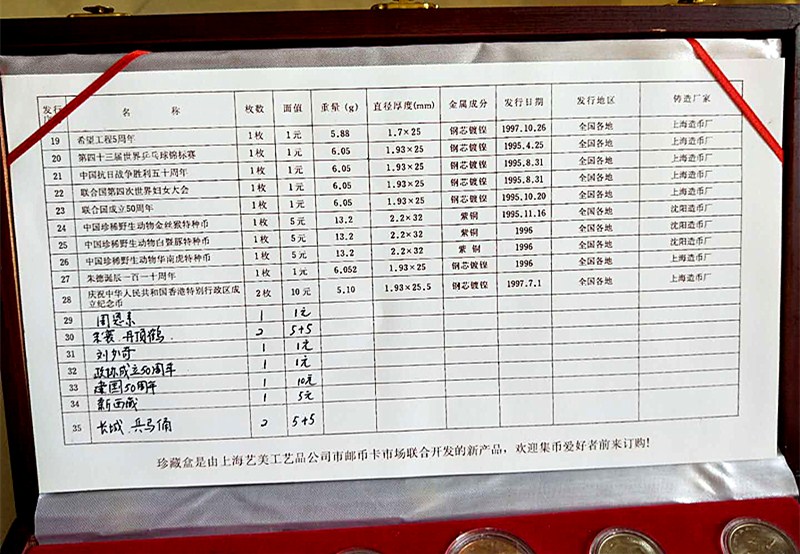 发行 名 称 枚数 面值 重量 (g) 直径厚度(mm) 金属成分 发行日期 发行地区 铸造厂家
19 希望工程5周年 1枚 1元 5.88 1.7×25 钢芯镀镍 1997.10.26 全国各地 上海造币厂
20 第四十三届世界乒乓球锦标赛 1枚 1元 6.05 1.93×25 钢芯镀镍 1995.4.25 全国各地 上海造币厂
21 中国抗日战争胜利五十周年 1枚 1元 6.05 1.93×25 钢芯镀镍 1995.8.31 全国各地 上海造币厂
22 联合国第四次世界妇女大会 1枚 1元 6.05 1.93×25 钢芯镀镍 1995.8.31 全国各地 上海造币厂
23 联合国成立50周年 1枚 1元 6.05 1.93×25 钢芯镀镍 1995.10.20 全国各地 上海造币厂
24 中国珍稀野生动物金丝猴特种币 1枚 5元 13.2 2.2×32 紫铜 1995.11.16 全国各地 沈阳造币厂
25 中国珍稀野生动物白暨豚特种币 1枚 5元 13.2 2.2×32 紫铜 1996 全国各地 沈阳造币厂
26 中国珍稀野生动物华南虎特种币 1枚 5元 13.2 2.2×32 紫 铜 1996 全国各地 沈阳造币厂
27 朱德诞辰一百一十周年 1枚 1元 6.052 1.93×25 钢芯镀镍 1996 全国各地 上海造币厂
28 庆祝中华人民共和国香港特别行政区成立纪念币 2枚 10元 5.10 1.93×25.5 钢芯镀镍 1997.7.1 全国各地 上海造币厂
29 周恩来 1 1元
30 朱鹮 丹顶鹤 2 5+5
31 刘少奇 1 1元
32 政协成立50周年 1 1元
33 建国50周年 1 10元
34 新西藏 1 5元
35 长城 兵马俑 2 5+5
珍藏盒是由上海艺美工艺品公司市邮币卡市场联合开发的新产品，欢迎集币爱好者前来订购!